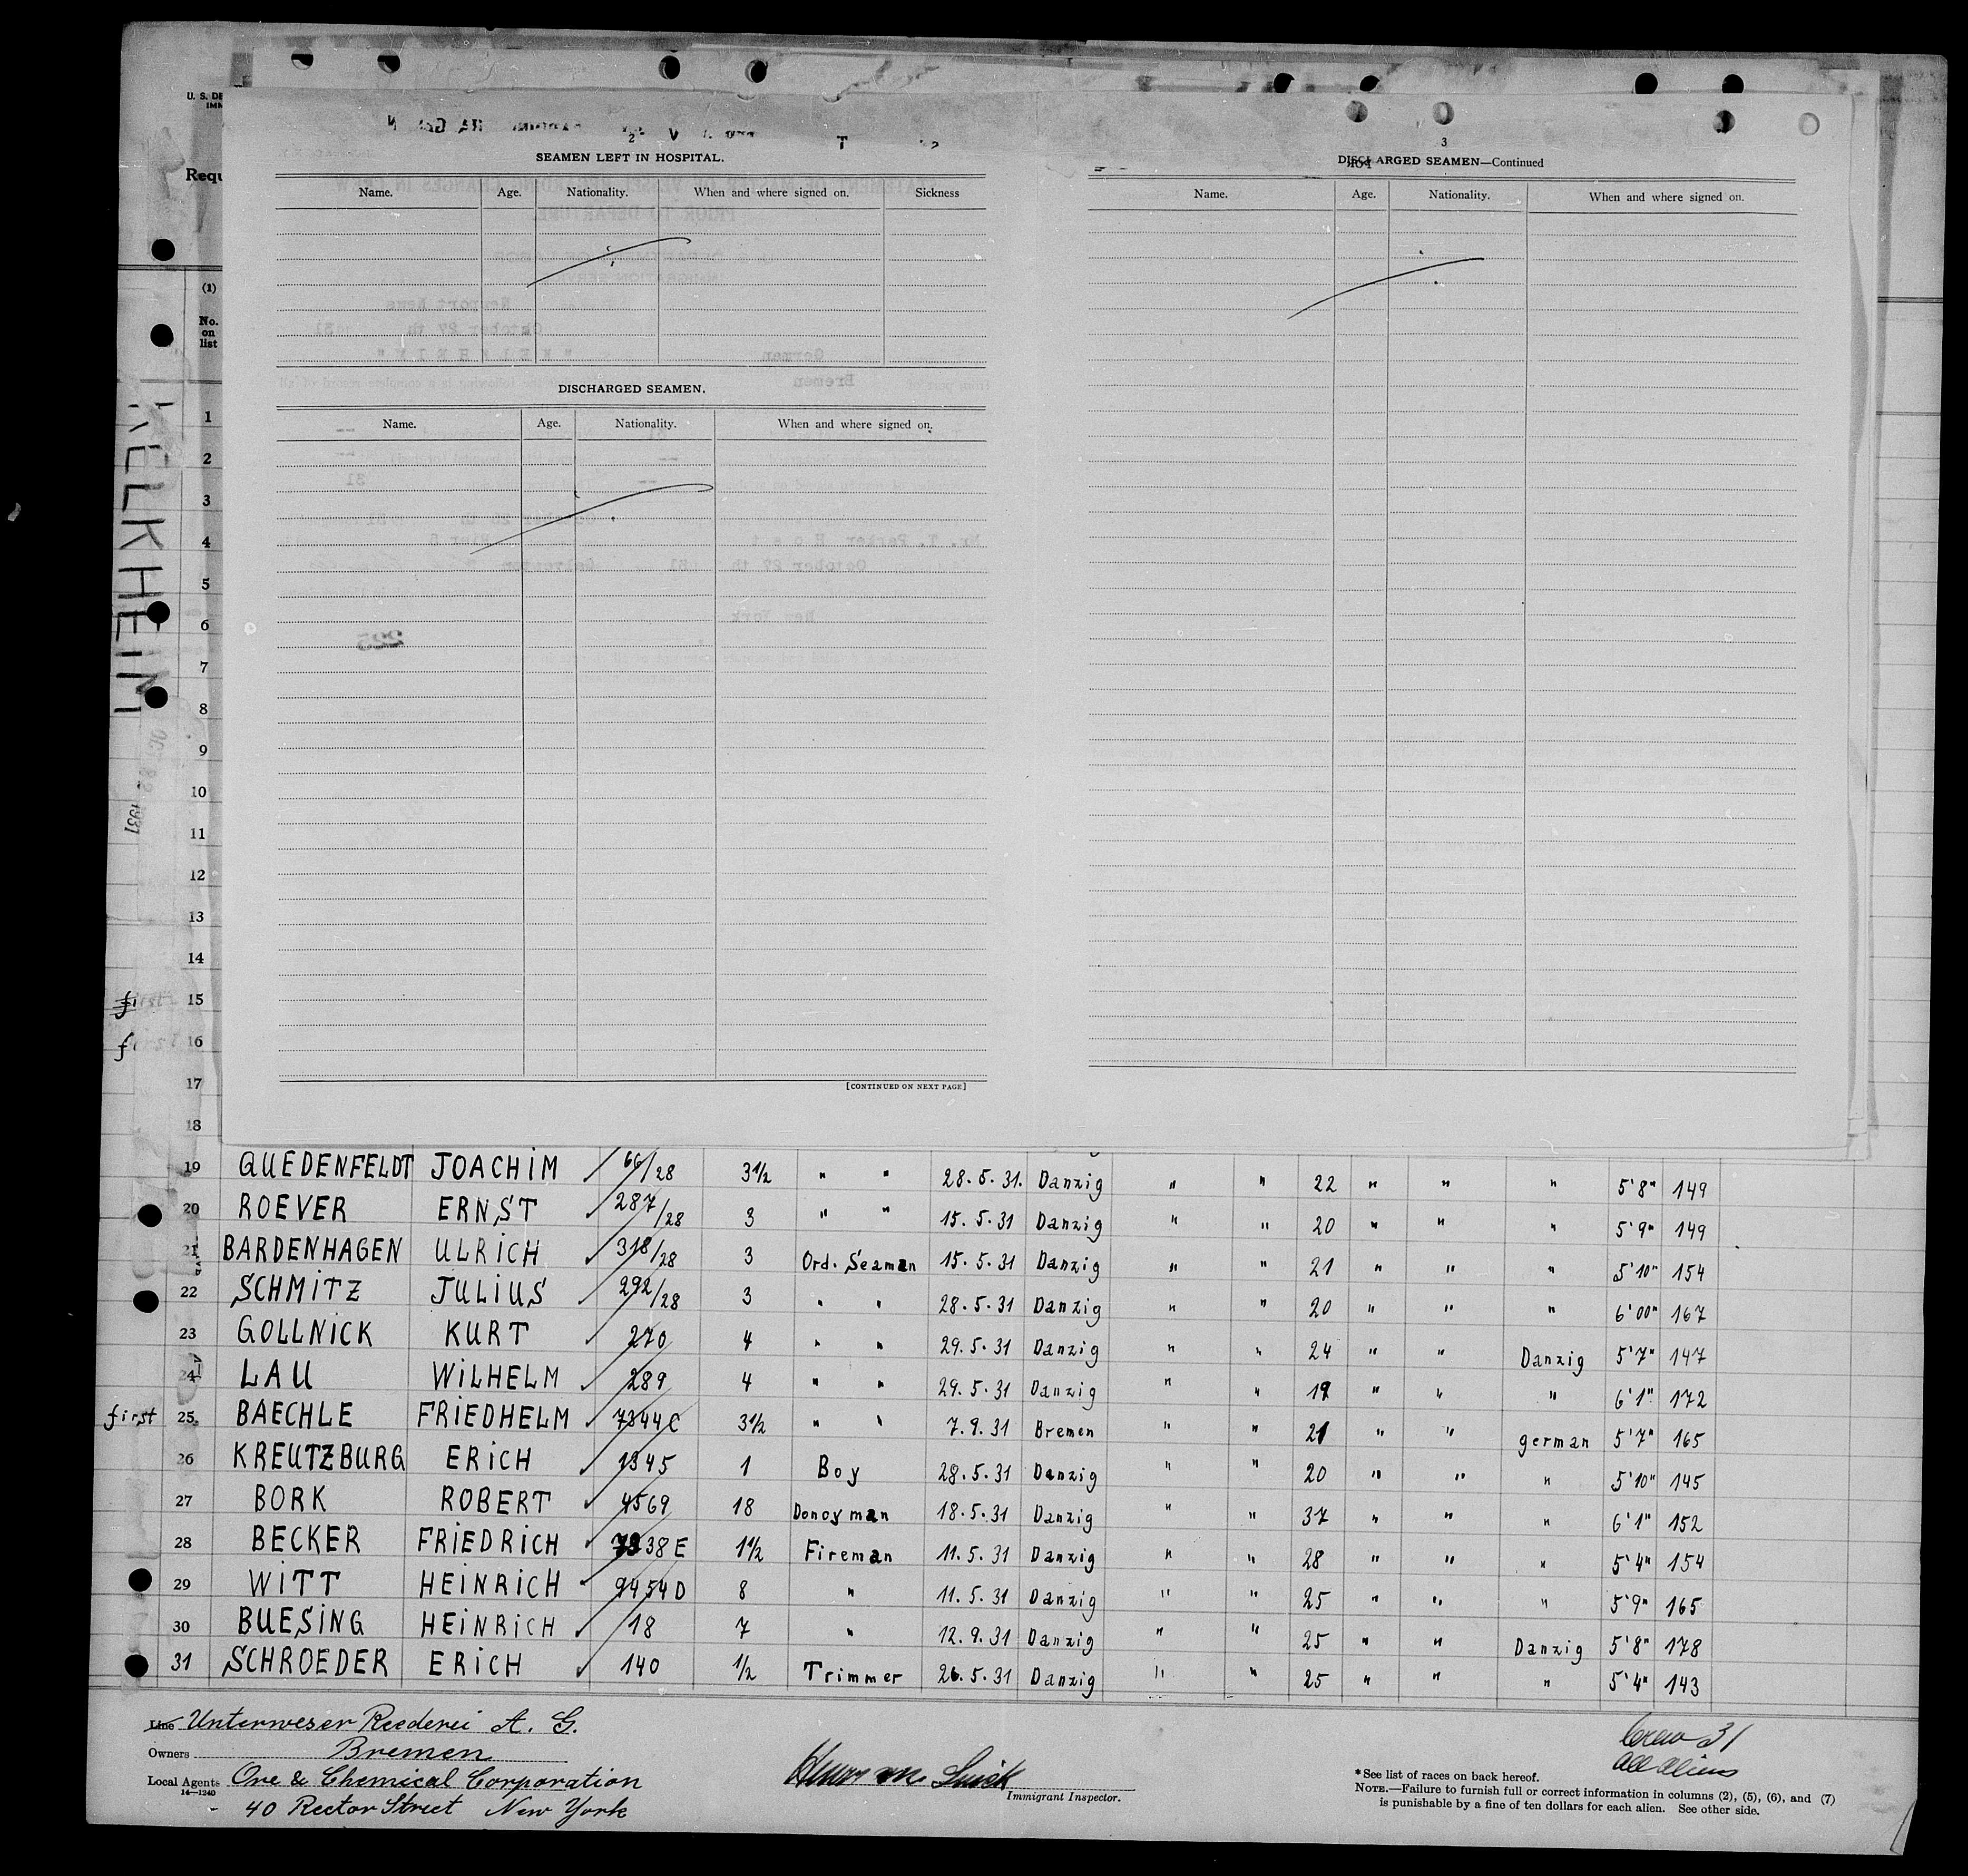 U. S. DE
IMM
Requ
2
SEAMEN LEFT IN HOSPITAL.
Name. Age. Nationality. When and where signed on. Sickness
DISCHARGED SEAMEN.
Name. Age. Nationality. When and where signed on.
[CONTINUED ON NEXT PAGE]
3
DISCHARGED SEAMEN—Continued
Name. Age. Nationality. When and where signed on.
(1)
No.
on
list
KELKHEIM
1931
1
2
3
4
5
6
7
8
9
10
11
12
13
14
first 15
16
17
18
19 QUEDENFELDT JOACHIM 66/28 3½ " " 28.5.31. Danzig " " 22 " " " 5'8" 149
20 ROEVER ERNST 287/28 3 " " 15.5.31 Danzig " " 20 " " " 5'9" 149
21 BARDENHAGEN ULRICH 318/28 3 Ord. Seaman 15.5.31 Danzig " " 21 " " " 5'10" 154
22 SCHMITZ JULIUS 292/28 3 " " 28.5.31 Danzig " " 20 " " " 6'00" 167
23 GOLLNICK KURT 270 4 " " 29.5.31 Danzig " " 24 " " Danzig 5'7" 147
24 LAU WILHELM 289 4 " " 29.5.31 Danzig " " 19 " " " 6'1" 172
first 25 BAECHLE FRIEDHELM 7344C 3½ " " 7.9.31 Bremen " " 21 " " german 5'7" 165
26 KREUTZBURG ERICH 1345 1 Boy 28.5.31 Danzig " " 20 " " " 5'10" 145
27 BORK ROBERT 4569 18 Donoyman 18.5.31 Danzig " " 37 " " " 6'1" 152
28 BECKER FRIEDRICH 7338E 1½ Fireman 11.5.31 Danzig " " 28 " " " 5'4" 154
29 WITT HEINRICH 9454D 8 " 11.5.31 Danzig " " 25 " " " 5'9" 165
30 BUESING HEINRICH 18 7 " 12.9.31 Danzig " " 25 " " Danzig 5'8" 178
31 SCHROEDER ERICH 140 ½ Trimmer 26.5.31 Danzig " " 25 " " " 5'4" 143
Line Unterweser Reederei A. G.
Owners Bremen
Local Agents Ore & Chemical Corporation
14—1240
40 Rector Street New York
Immigrant Inspector.
Crew 31
all aliens
* See list of races on back hereof.
NOTE.—Failure to furnish full or correct information in columns (2), (5), (6), and (7)
is punishable by a fine of ten dollars for each alien. See other side.